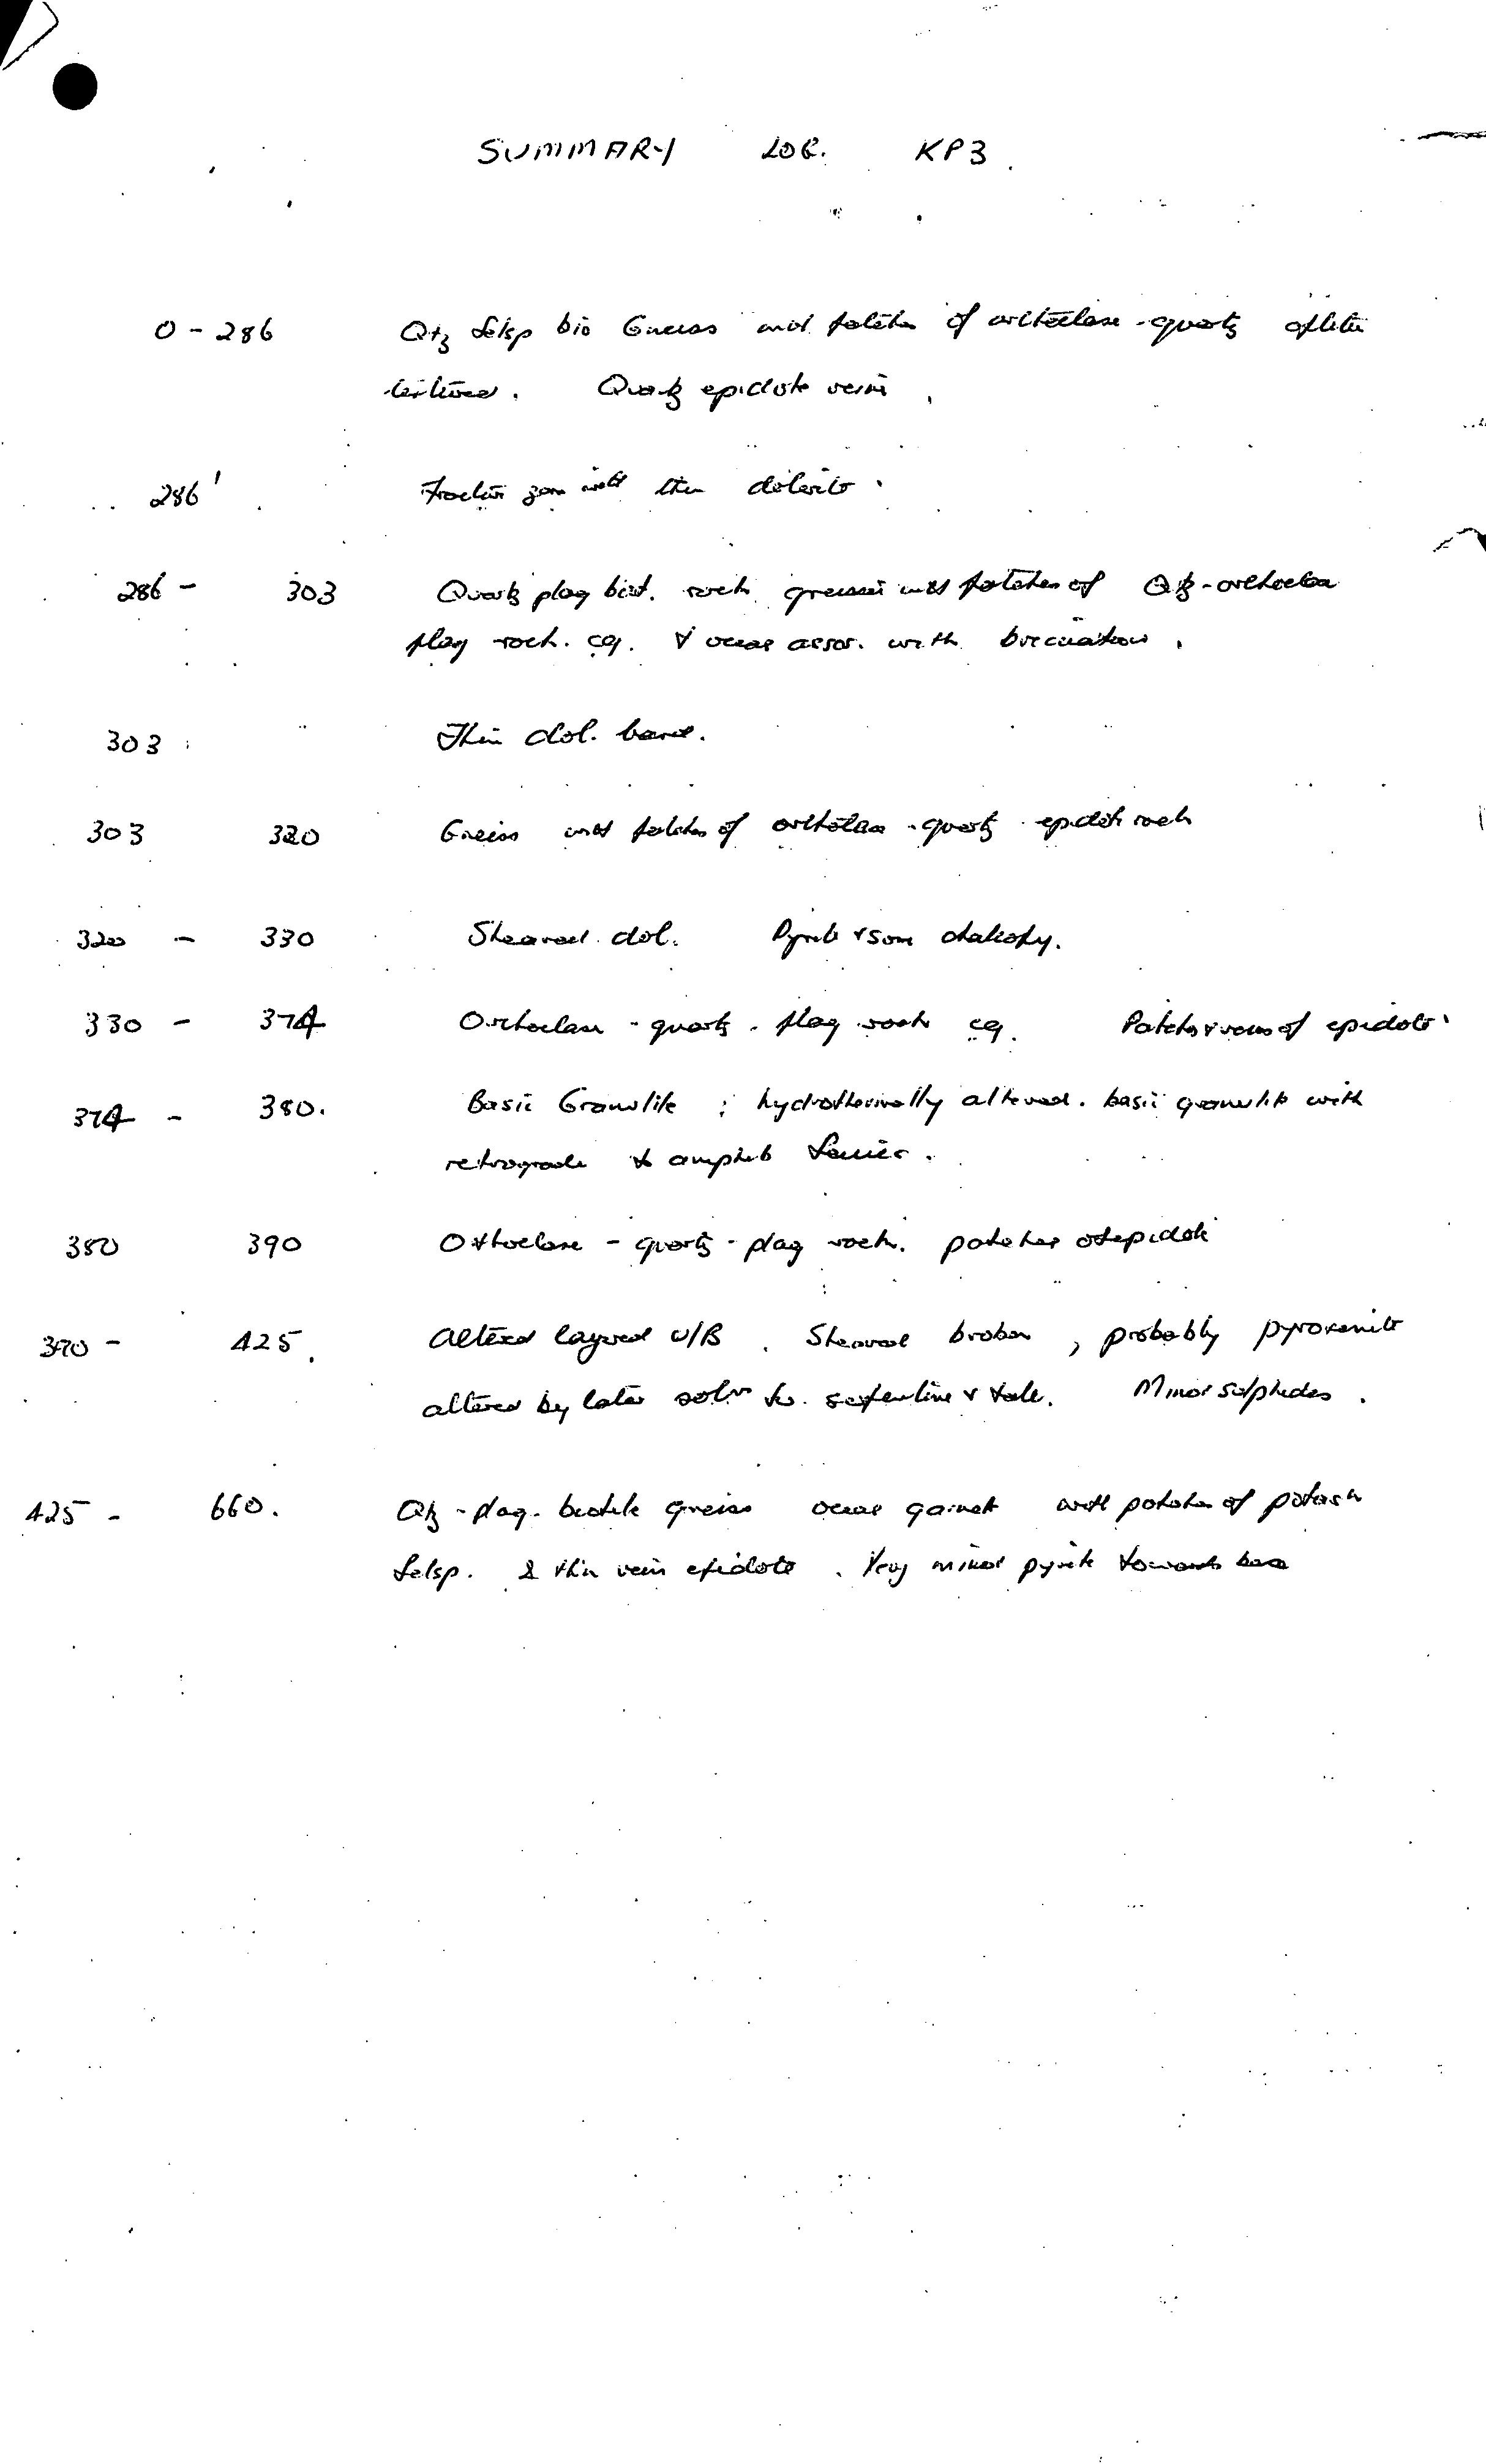 SUMMARY LOG. KP3.
0 - 286 Qtz felsp bio Gneiss with patches of orthoclase - quartz aplitic
textures. Quartz epidote veins.
286' Fracture zone with thin dolerite.
286 - 303 Quartz plag biot. rock gneissic with patches of Qtz - orthoclase
plag rock. cg. & veins assoc. with brecciation.
303 Thin dol. band.
303 320 Gneiss with patches of orthoclase - quartz - epidote rock
320 - 330 Sheared dol. Pyrite & some chalcopy.
330 - 374 Orthoclase - quartz - plag rock cg. Patches & veins of epidote.
374 - 380. Basic Granulite ; hydrothermally altered. basic granulite with
retrograde to amphib facies.
380 390 Orthoclase - quartz - plag rock. patches of epidote
390 - 425. Altered layered U/B. Sheared broken, probably pyroxenite
altered by later soln to. serpentine & talc. Minor sulphides.
425 - 660. Qtz - plag. biotite gneiss occas garnet with patches of potash
felsp. & thin vein epidote. Very minor pyrite towards base